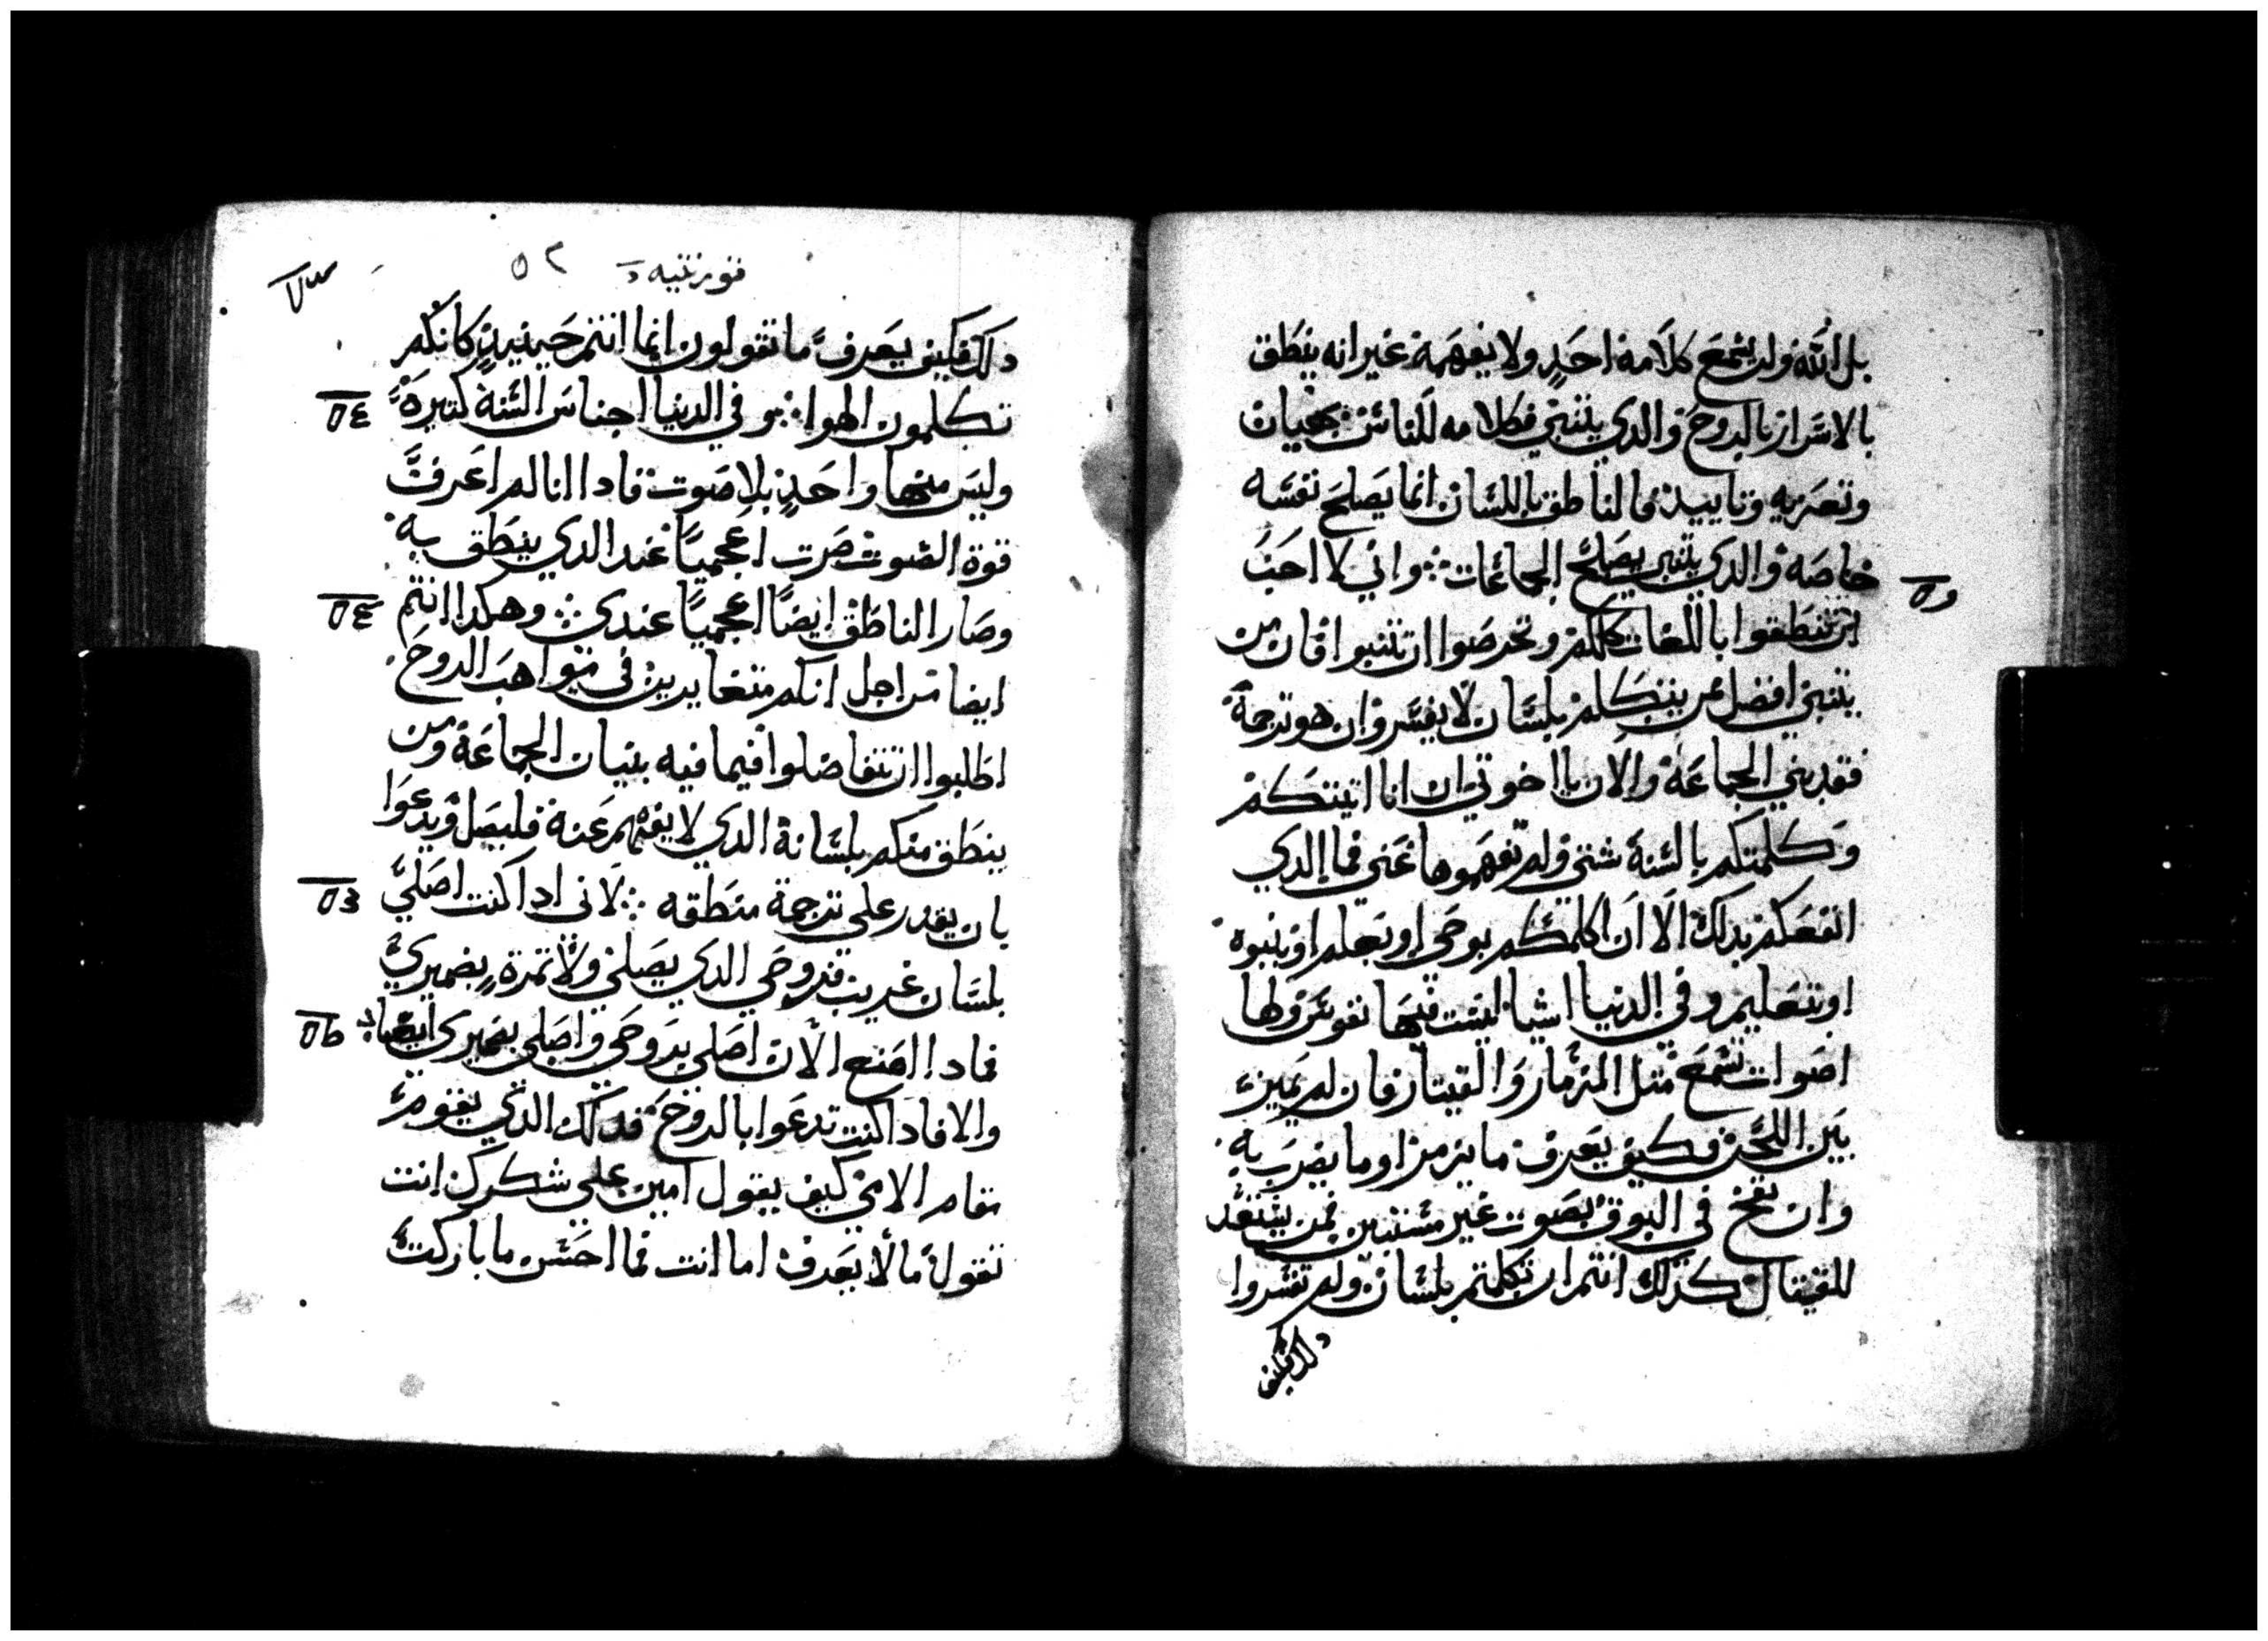 بل الله ولن يسمع كلامه احد ولا يفهمه غير انه ينطق
بالاسرار بالروح والدي يتنبي فكلامه للناس بنيان
وتعزيه وتاييد فالناطق باللسان انما يصلح نفسه
خاصه والدي يتنبي يصلح الجماعات ∴ واني لا احب
ان تنطقوا باللغات كلكم وتحرصوا ان تتنبوا فان من
يتنبي افضل ممن يتكلم بلسان لا يفسر وان هو ترجمه
فقد بني الجماعة والان يا اخوتي ان انا اتيتكم
وكلمتكم بالسنة شتي ولم تفهموها عني فما الدي
انفعكم بدلك الا ان اكلمكم بوحي او بعلم او بنبوه
او بتعليم وفي الدنيا اشيا ليست فيها نفوس ولها
اصوات تسمع متل المزمار والقيتار فان لم يميز
بين اللحن فكيف يعرف ما يزمز او ما يضرب به
وان نفخ في البوق بصوت غير مستبين فمن يستعد
للقيتال كدلك انتم ان تكلمتم بلسان ولم تفسروا
دلك فكيف
قورنتيه د ٥٢
دلك فكيف يعرف ما تقولون انما انتم حينيد كانكم
تكلمون الهوا ∴ وفي الدنيا اجناس السنة كتيرة
وليس منها واحد بلا صوت فادا انا لم اعرف
قوة الصوت صرت اعجميا عند الدي ينطق به
وصار الناطق ايضا اعجميا عندي ∴ وهكدا انتم
ايضا من اجل انكم متغايرين في مواهب الروح
اطلبوا ان تتفاضلوا فيما فيه بنيان الجماعة ومن
ينطق منكم بلسانه الدي لا يفهم عنه فليصل ويدعوا
بان يقدر علي ترجمة منطقه ∴ لاني ادا كنت اصلي
بلسان غريب فروحي الدي يصلي ولا تمرة بضميري
فمادا اصنع الان اصلي بروحي واصلي بضميري ايضا
والا فادا كنت تدعوا بالروح فدلك الدي يقوم
مقام الامي كيف يقول امين علي شكرك انت
تقول ما لا يعرف اما انت فما احسن ما باركت